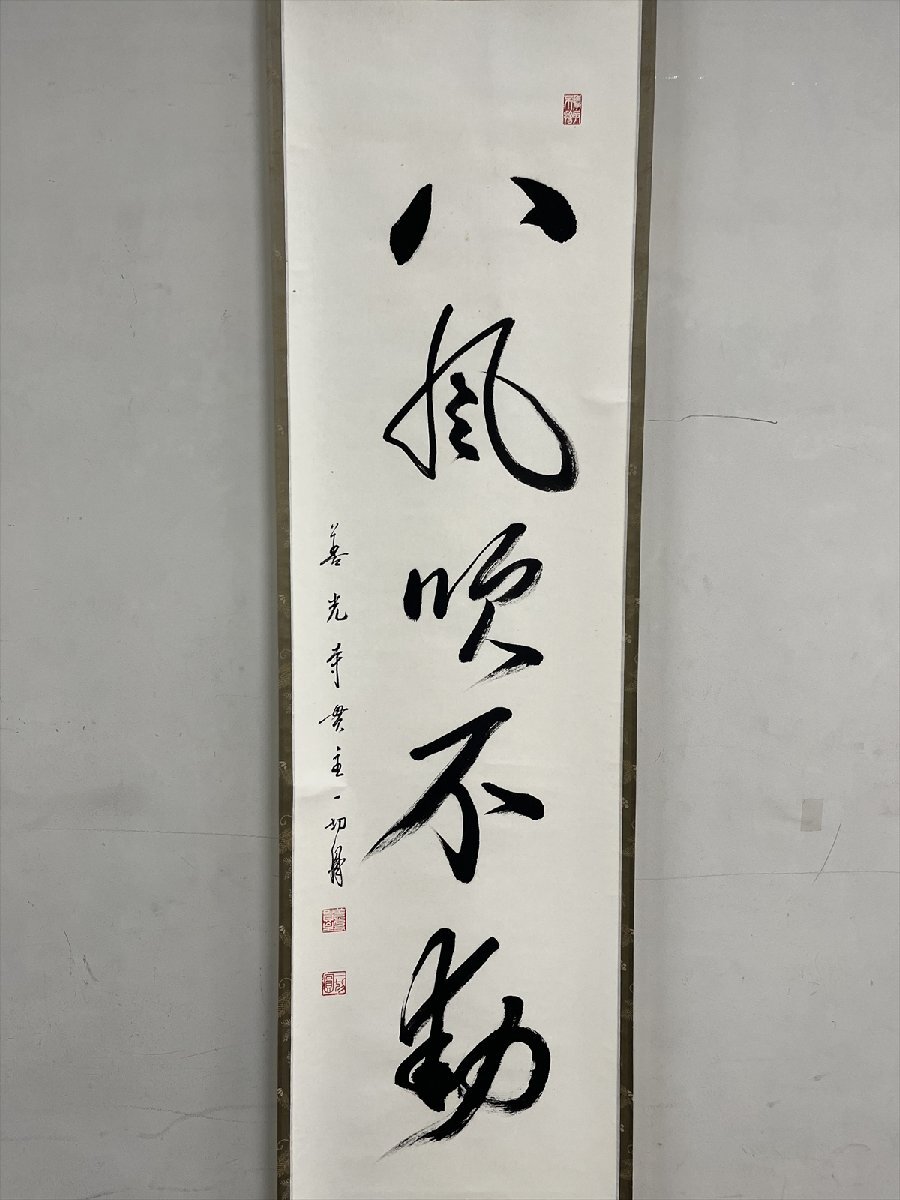 八風吹不動
善光寺貫主一切